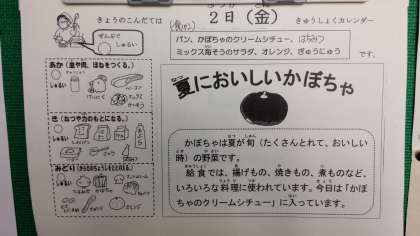 きょうのこんだては
2日(金)
きゅうしょくカレンダー
ぜんぶで
しゅるい
パン、かぼちゃのクリームシチュー、はちみつ
ミックス海そうのサラダ、オレンジ、ぎゅうにゅう
です。
あか(血や肉、ほねをつくる。)
しゅるい
ベーコン
き(ねつや力のもとになる。)
しゅるい
みどり(からだのちょうしをととのえる)
しゅるい
オレンジ
夏においしいかぼちゃ
かぼちゃは夏が旬(たくさんとれて、おいしい
時)の野菜です。
給食では、揚げもの、焼きもの、煮ものなど、
いろいろな料理に使われています。今日は「かぼ
ちゃのクリームシチュー」に入っています。